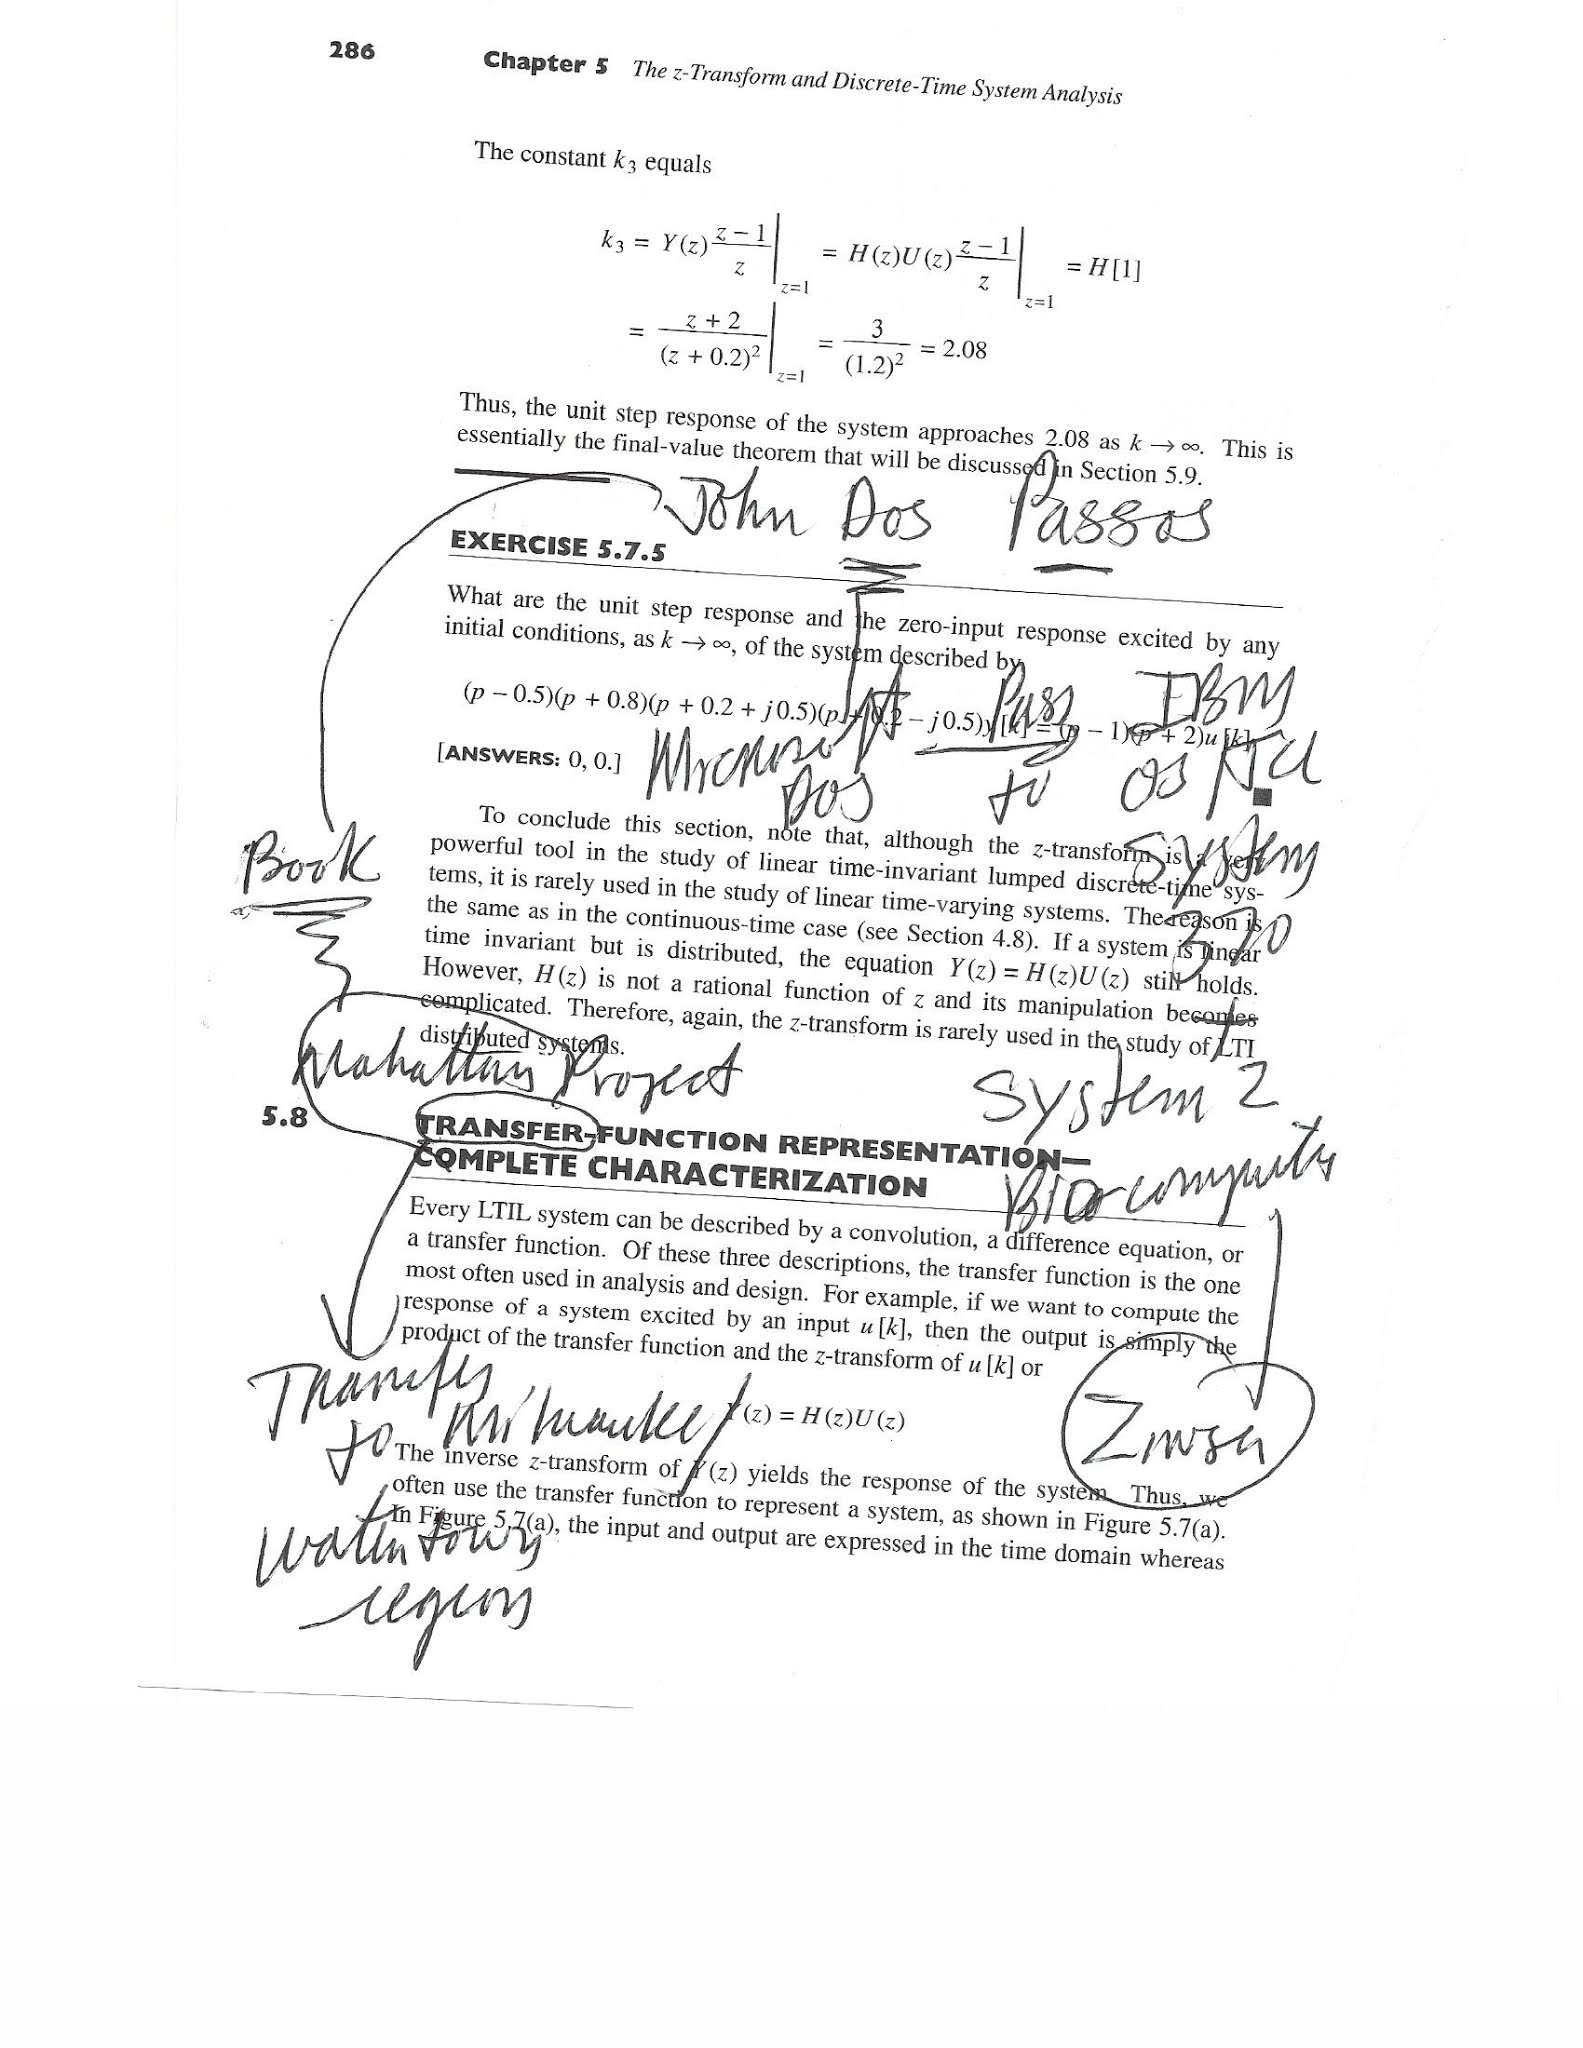 286 Chapter 5 The z-Transform and Discrete-Time System Analysis
The constant k3 equals
k3 = Y(z) z − 1 / z |z=1 = H(z)U(z) z − 1 / z |z=1 = H[1]
= z + 2 / (z + 0.2)² |z=1 = 3 / (1.2)² = 2.08
Thus, the unit step response of the system approaches 2.08 as k → ∞. This is
essentially the final-value theorem that will be discussed in Section 5.9.
John Dos Passos
EXERCISE 5.7.5
What are the unit step response and the zero-input response excited by any
initial conditions, as k → ∞, of the system described by
(p − 0.5)(p + 0.8)(p + 0.2 + j0.5)(p + 0.2 − j0.5)y[k] = (p − 1)(p + 2)u[k]
Pass IBM
[ANSWERS: 0, 0.]
Microsoft
DOS to OS
To conclude this section, note that, although the z-transform is a very
System
Book
powerful tool in the study of linear time-invariant lumped discrete-time sys-
tems, it is rarely used in the study of linear time-varying systems. The reason is
370
the same as in the continuous-time case (see Section 4.8). If a system is linear
time invariant but is distributed, the equation Y(z) = H(z)U(z) still holds.
However, H(z) is not a rational function of z and its manipulation becomes
complicated. Therefore, again, the z-transform is rarely used in the study of LTI
distributed systems.
Mahattan Project
System 2
5.8 TRANSFER-FUNCTION REPRESENTATION—
COMPLETE CHARACTERIZATION
Biocomputer
Every LTIL system can be described by a convolution, a difference equation, or
a transfer function. Of these three descriptions, the transfer function is the one
most often used in analysis and design. For example, if we want to compute the
response of a system excited by an input u[k], then the output is simply the
product of the transfer function and the z-transform of u[k] or
Transfer
to Milwaukee
Y(z) = H(z)U(z)
The inverse z-transform of Y(z) yields the response of the system. Thus, we
often use the transfer function to represent a system, as shown in Figure 5.7(a).
In Figure 5.7(a), the input and output are expressed in the time domain whereas
Watertown
region